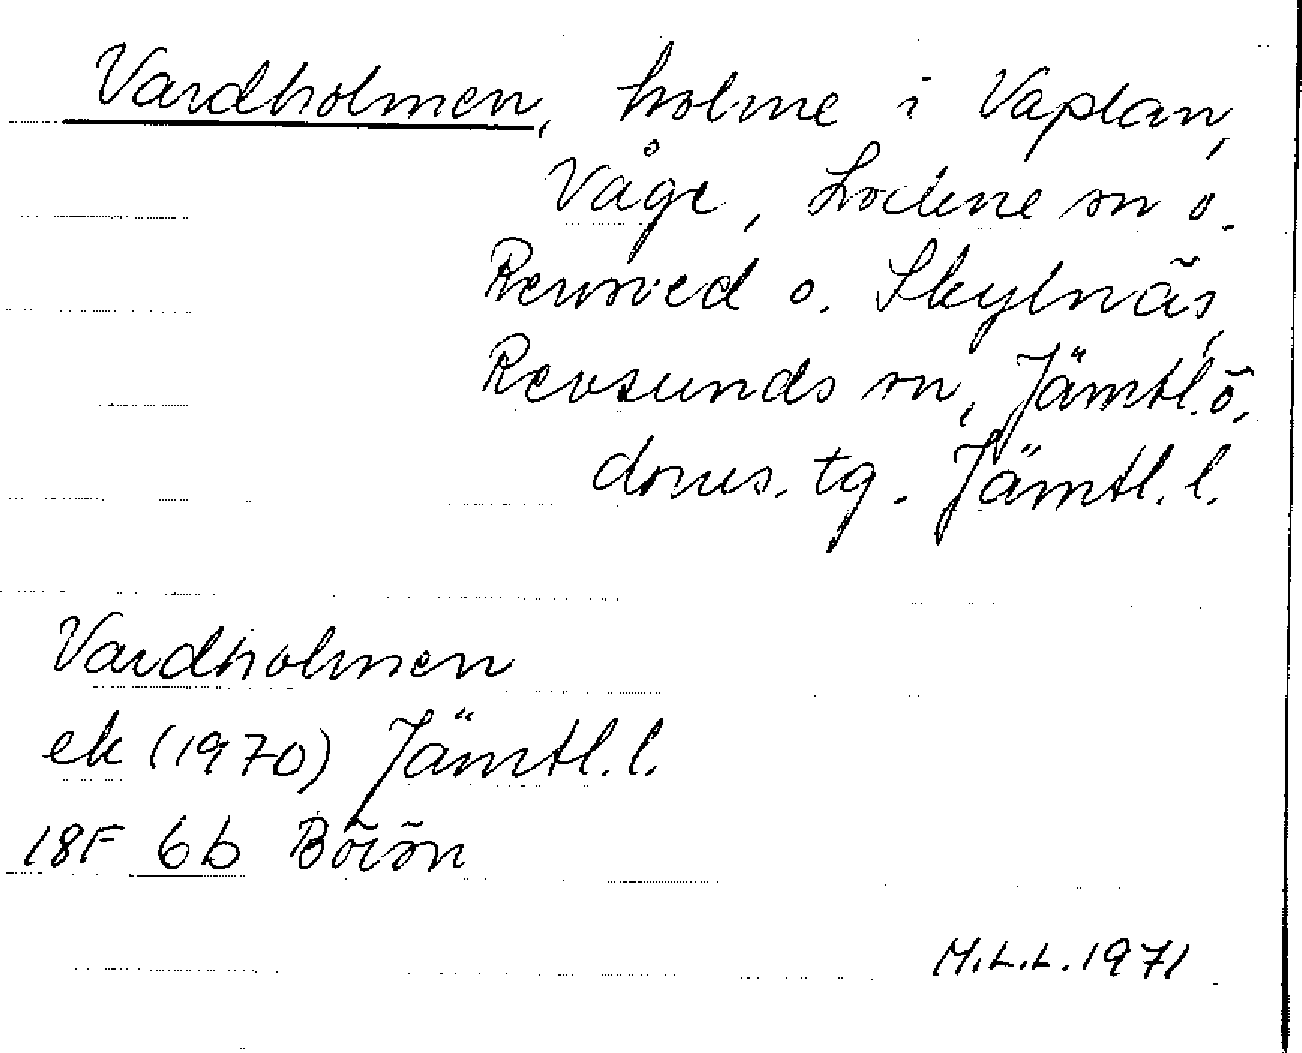 Vardholmen, holme i Vaplan,
Våge, Lockne sn o.
Rensved o. Skylnäs,
Revsunds sn, Jämtl. ö.
doms. tg. Jämtl. l.
Vardholmen
ek (1970) Jämtl. l.
18F 6b Börön
M.L.L. 1971